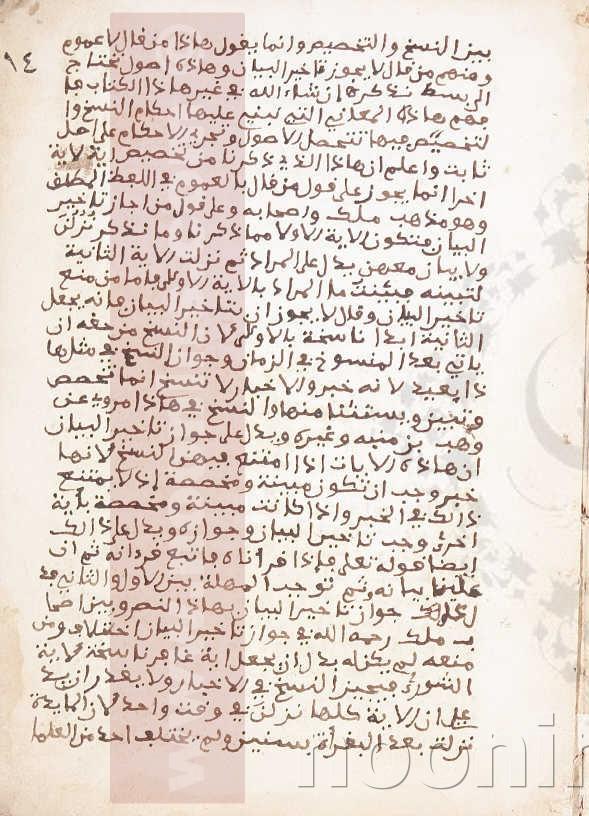 بين النسخ والتخصيص وانما يقول هاذا من قال لا عموم
ومنهم من قال لا يجوز تاخير البيان وهاذه اصول تحتاج
الى بسط نذكره ان شاء الله في غير هاذا الكتاب فا
فهم هاذه المعاني التي تبنى عليها احكام النسخ وا
لتخصيص فبها تتحصل الاصول وتجري الاحكام على اصل
ثابت واعلم ان هاذا الذي ذكرنا من تخصيص اية لاية
اخرا انما يجوز على قول من قال بالعموم في اللفظ المطلق
وهو مذهب ملك واصحابه وعلى قول من اجاز تاخير
البيان فتكون الاية الاولا مما ذكرنا وما نذكر نزلت
ولا بيان معهن يدل على المراد ثم نزلت الاية الثانية
لتبينه فبينت ما المراد بالاية الاولى فاما من منع
تاخير البيان وقال لا يجوز ان يتاخير البيان فانه يجعل
الثانية ابدا ناسخة بالاولى لان النسخ من حقه ان
ياتي بعد المنسوخ في الزمان وجواز النسخ في مثلها
ذا بعيد لانه خبر والاخبار لا تنسخ انما تخصص
وتبين ويستثنا منها والنسخ في هاذا مروي عن
وهب بن منبه وغيره ويدل على جواز تاخير البيان
ان هاذه الايات اذا امتنع فيهن النسخ لانها
خبر وجب ان تكون مبينة ومخصصة اذ لا يمتنع
ذالك في الخبر واذا كانت مبينة ومخصصة باية
اخرى وجب تاخير البيان وجوازه ويدل على ذالك
ايضا قوله تعلى فاذا قراناه فاتبع قرءانه ثم ان
علينا بيانه وثم توجب المهلة بين الاول والثاني فد
لذلك جواز تاخير البيان بهاذا النص وبين اصحا
ب ملك رحمه الله في جواز تاخير البيان اختلاف ومن
منعه لم يكن له بد ان يجعل اية غافر ناسخة لاية
الشورى فيجيز النسخ في الاخبار ولا يقدر ان يد
على ان الاية كلها نزلن في وقت واحد لان المايدة
نزلة بعد البقرة بسنين ولم يختلف احد من العلما
١٤
noonin